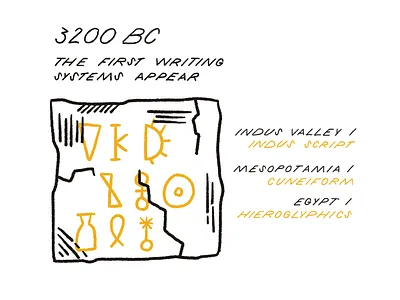 3200 BC
THE FIRST WRITING
SYSTEMS APPEAR
INDUS VALLEY /
INDUS SCRIPT
MESOPOTAMIA /
CUNEIFORM
EGYPT /
HIEROGLYPHICS